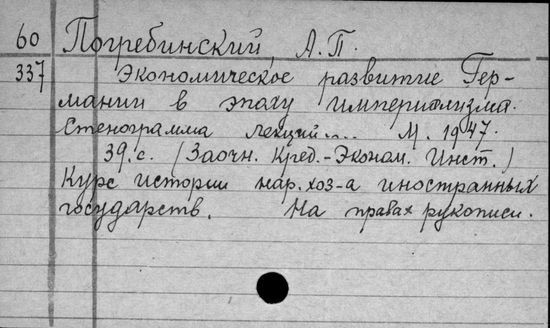 60 Погребинский, А.П.
337 Экономическое развитие Гер-
мании в эпоху империализма.
Стенограмма лекций.... М. 1947.
39.с. (Заочн. Кред.-Эконом. Инст.)
Курс истории нар. хоз-а иностранных
государств. На правах рукописи.